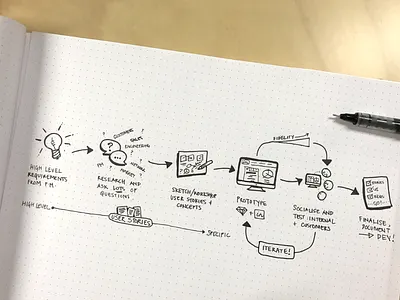 FIDELITY
CUSTOMER
SALES
ENGINEERING
?
PM
MARKET
HIGH LEVEL
REQUIREMENTS
FROM PM
RESEARCH AND
ASK LOTS OF
QUESTIONS
SKETCH/WORKSHOP
USER STORIES +
CONCEPTS
PROTOTYPE
+ in
SOCIALISE AND
TEST: INTERNAL
+ CUSTOMERS
FINALISE,
DOCUMENT
→ DEV!
HIGH LEVEL
USER STORIES
SPECIFIC
ITERATE!